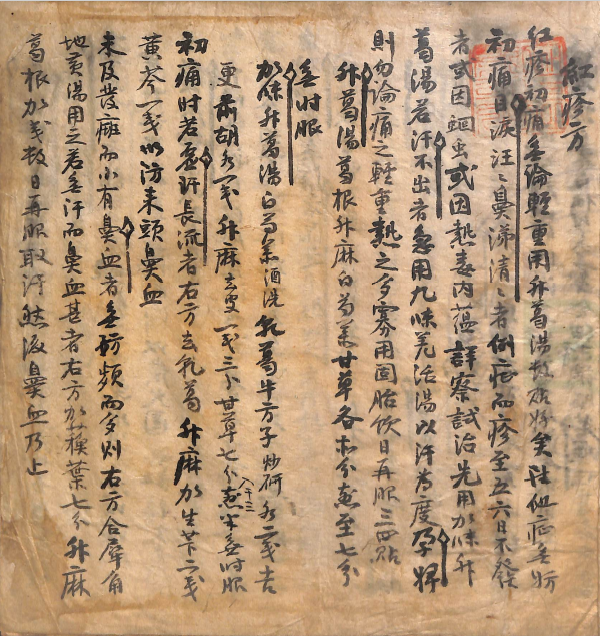 紅疹方
紅疹初痛無論輕重用升葛湯數貼好矣雖他症無妨
初痛目淚汪〻鼻涕清〻者例症而疹至五六日不發
者或因蛔虫或因熱毒內蘊詳察試治先用加味升
葛湯若汗不出者急用九味羌活湯以汗為度孕婦
則勿論痛之輕重熱之多寡用固胎飲日再服三四貼
升葛湯 葛根升麻白芍藥甘草各 分煎至七分
無時服
加味升葛湯 白芍藥酒洗 乾葛牛方子炒研各二戔去
更 前胡各一戔升麻 三分甘草七分 入干三 煎半無時服
初痛时若 汗長流者右方去乾葛升麻加生芐二戔
黃芩一戔以防來頭鼻血
未及發癍而小有鼻血者無妨頻而多則右方合犀角
地黃湯用之若無汗而鼻血甚者右方加蘇葉七分升麻
葛根加戔數日再服取汗然後鼻血乃止